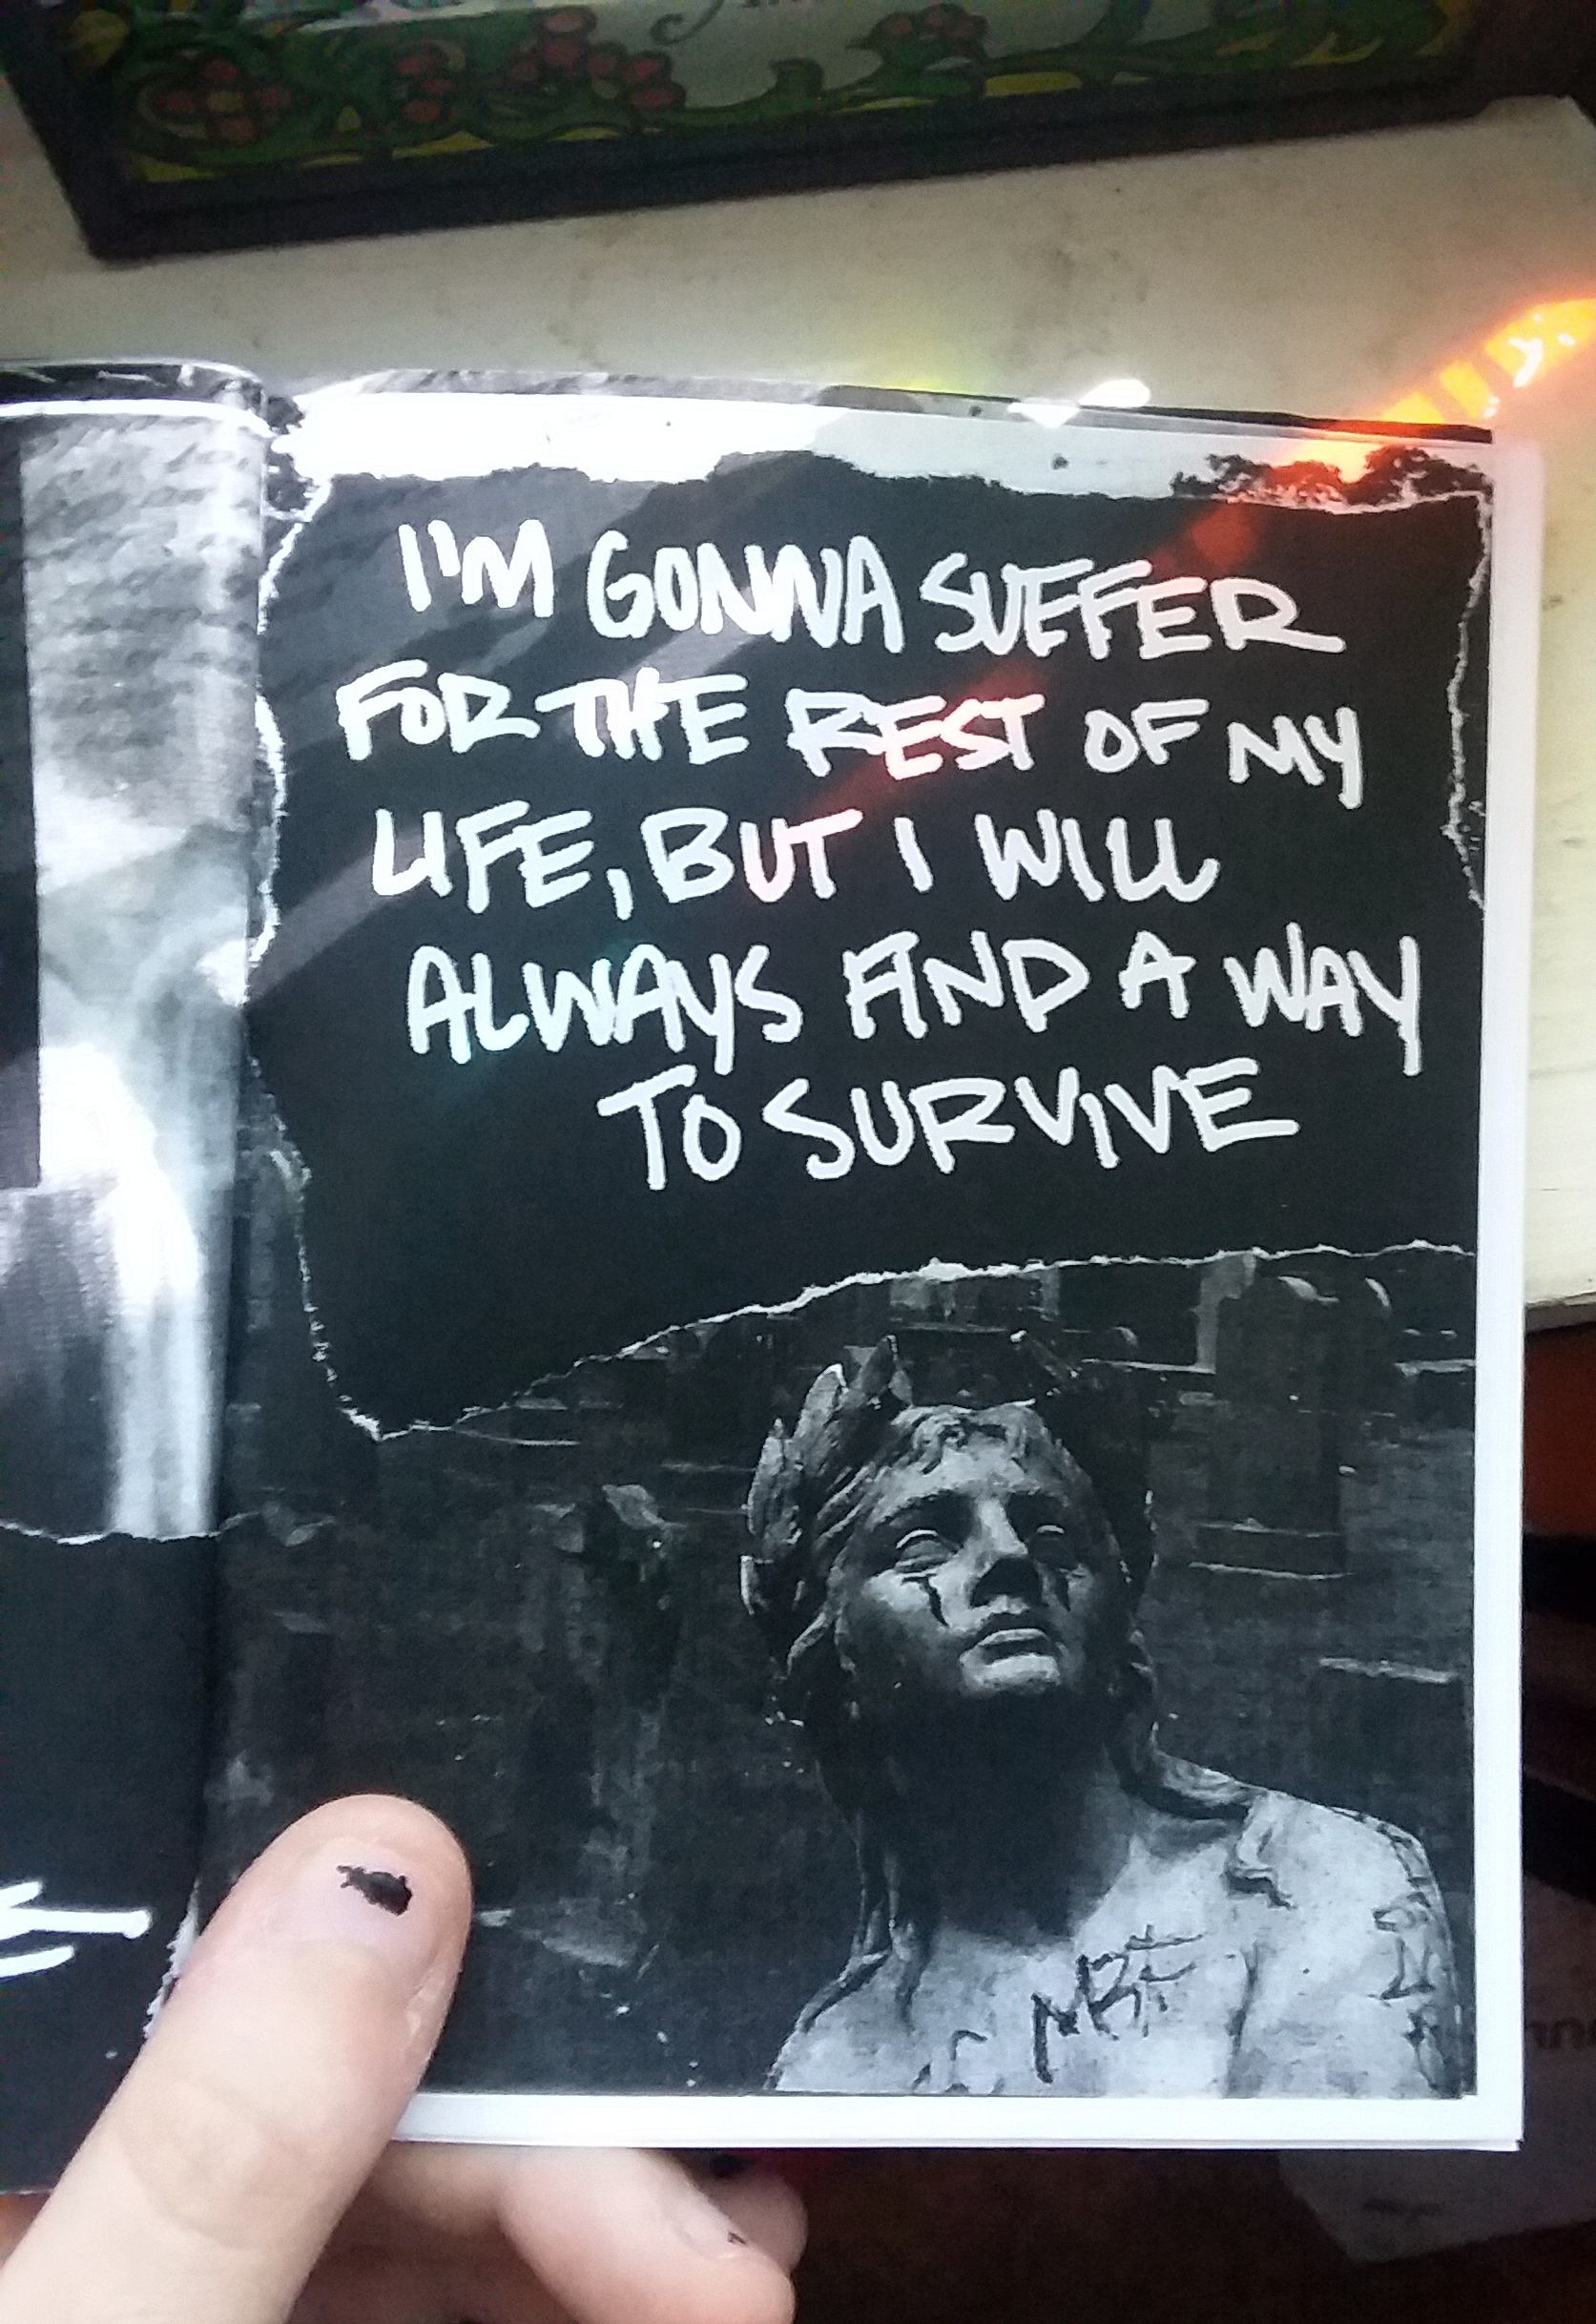 I'M GONNA SUFFER
FOR THE REST OF MY
LIFE, BUT I WILL
ALWAYS FIND A WAY
TO SURVIVE